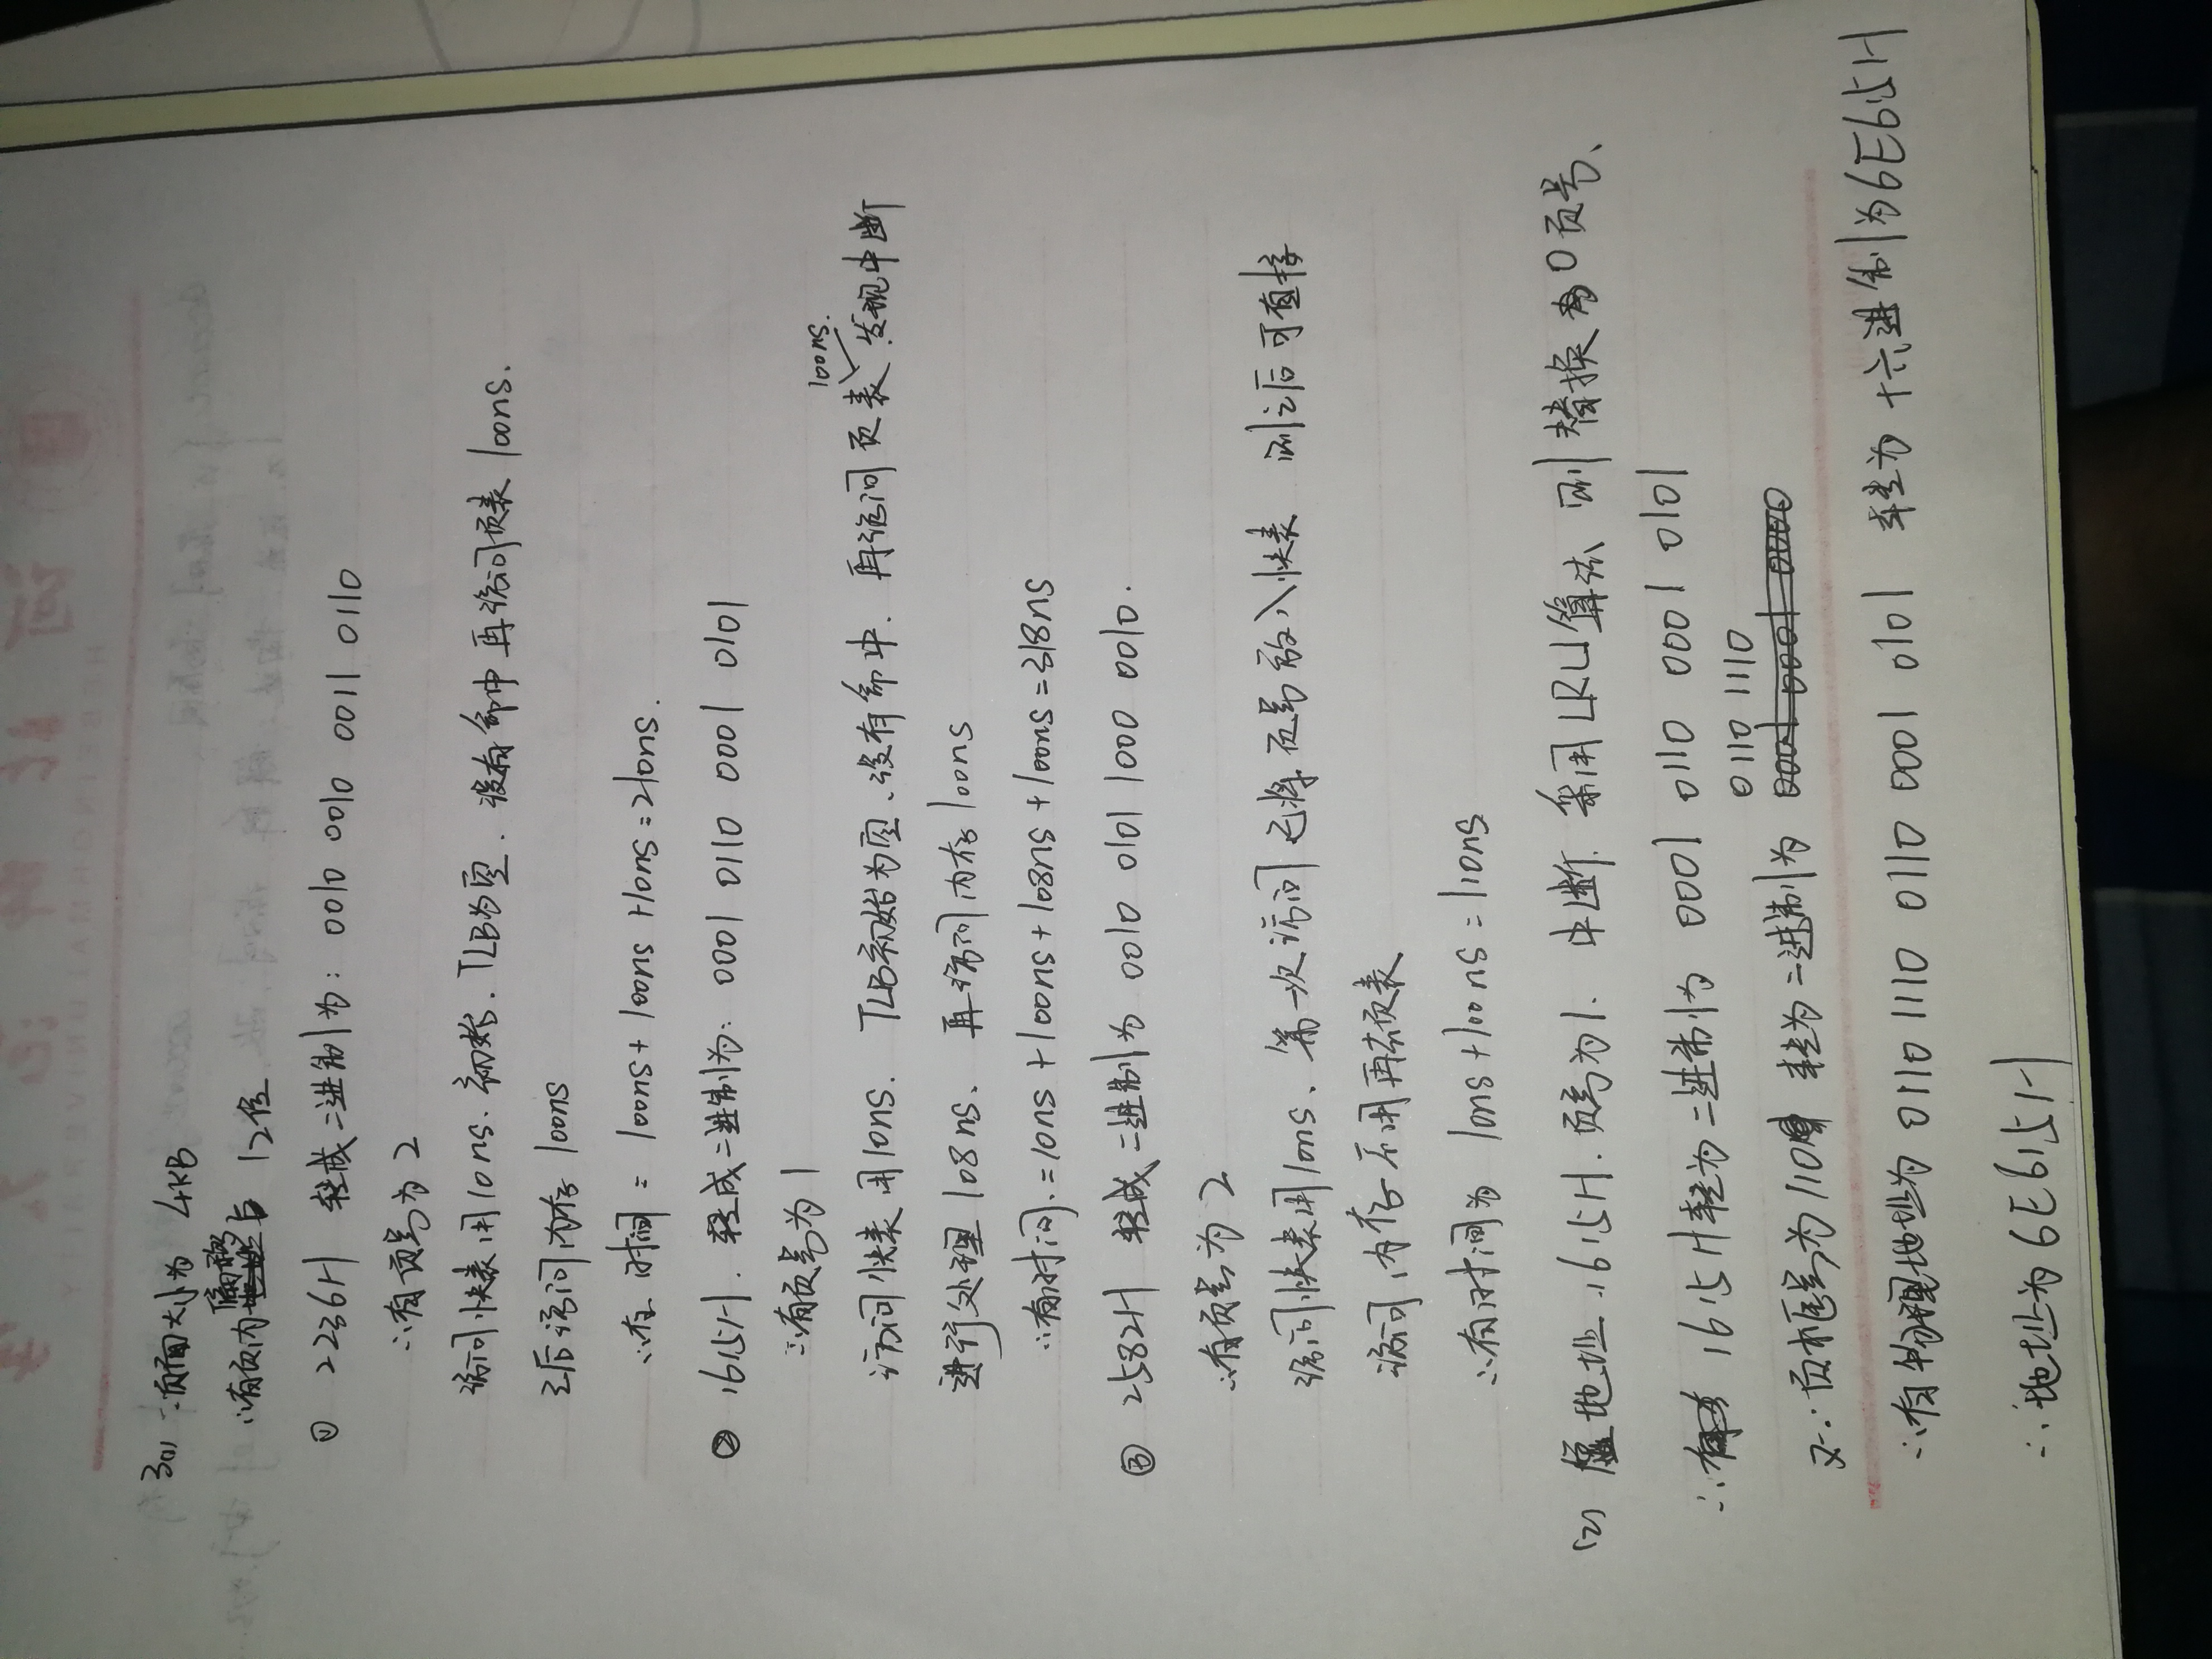 3(1) ∵页面大小为 4KB
∴有页内偏移占 12位
① 2236H 转成二进制为: 0010 0010 0011 0110
∴有页号为2
访问快表用10ns. 初始. TLB为空. 没有命中 再访问页表 100ns.
之后访问内存 100ns
∴有. 时间 = 100ns + 100ns + 10ns = 210ns.
② 1615H. 转成二进制为: 0001 0110 0001 0101
∴有页号为1
访问快表用10ns. TLB初始为空、没有命中. 再访问页表 100ns. 发现中断
进行处理 108ns、再访问内存 100ns
∴有时间. = 10ns + 100ns + 108ns + 100ns = 318ns
③ 2582H 转成二进制为 0010 0101 1000 0010.
∴有页号为2
访问快表用10ns、第一次访问已将页号放入快表 则之后可直接
访问内存不用再去页表
∴有时间为 10ns + 100ns = 110ns
(2) 虚地址 1615H. 页号为1. 中断. 采用LRU算法 则替换为0页号、
∴有 1615H转为二进制为 0001 0110 0001 0101
又∵页框号为110 转为二进制为 0110 1110
∴有物理地址为 0110 1110 0110 0001 0101 转为十六进制为6E615H
∴地址为6E615H